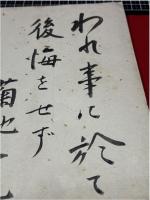 われ事に於て
後悔をせず
菊池